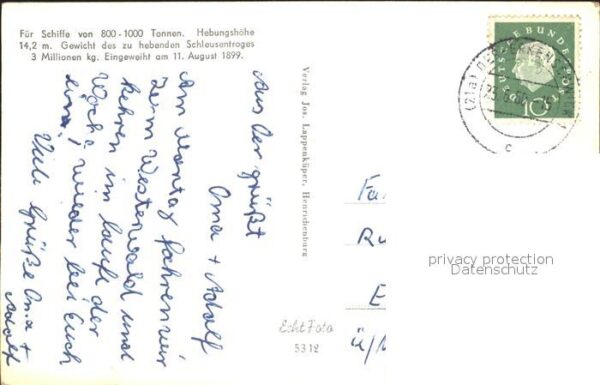 Für Schiffe von 800-1000 Tonnen. Hebungshöhe
14,2 m. Gewicht des zu hebenden Schleusentroges
3 Millionen kg. Eingeweiht am 11. August 1899.
Aus der grüßt
Oma + Adolf
Am Montag fahren wir
zum Westerwald und
kehren im laufe der
Woche wieder bei Euch
ein.
Viele Grüße Oma +
Adolf
Verlag Jos. Lappenküper, Henrichenburg
Echt Foto
5312
DEUTSCHE BUNDESPOST
10
(21a)
c
Fa
Ru
E
ü/
privacy protection
Datenschutz